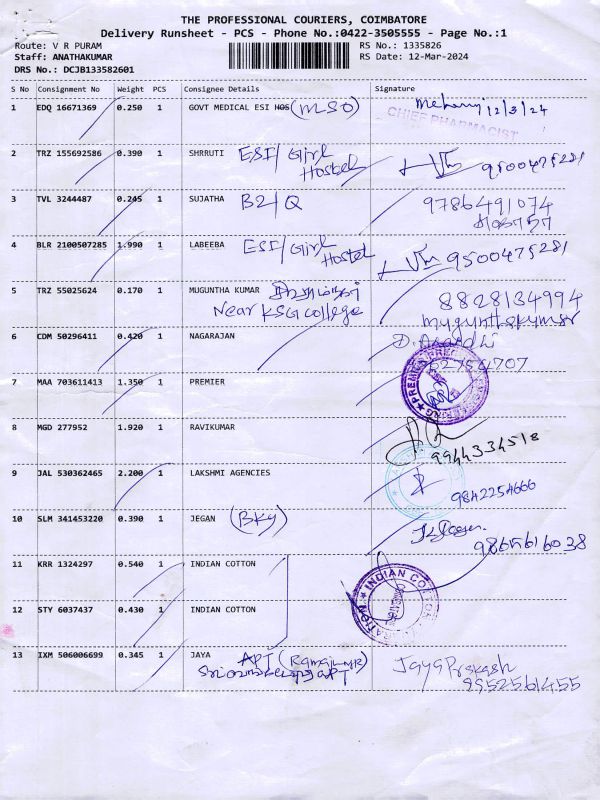 THE PROFESSIONAL COURIERS, COIMBATORE
Delivery Runsheet - PCS - Phone No.:0422-3505555 - Page No.:1
Route: V R PURAM RS No.: 1335826
Staff: ANATHAKUMAR RS Date: 12-Mar-2024
DRS No.: DCJB133582601
S No Consignment No Weight PCS Consignee Details Signature
1 EDQ 16671369 0.250 1 GOVT MEDICAL ESI HOS (MSO) 12/3/24
CHIEF PHARMACIST
2 TRZ 155692586 0.390 1 SHRRUTI ESI/Girl Hostel 9500475281
3 TVL 3244487 0.245 1 SUJATHA B2/Q 9786491074
4 BLR 2100507285 1.990 1 LABEEBA ESI/Girl Hostel 9500475281
5 TRZ 55025624 0.170 1 MUGUNTHA KUMAR 8828134994
Near KSG college mugunthakumar
6 CDM 50296411 0.420 1 NAGARAJAN
7 MAA 703611413 1.350 1 PREMIER
8 MGD 277952 1.920 1 RAVIKUMAR 9944334518
9 JAL 530362465 2.200 1 LAKSHMI AGENCIES 9842254666
10 SLM 341453220 0.390 1 JEGAN (BKY) 9865616038
11 KRR 1324297 0.540 1 INDIAN COTTON
INDIAN COTTON
12 STY 6037437 0.430 1 INDIAN COTTON
13 IXM 506006699 0.345 1 JAYA APT Jaya Prakash
9952561455